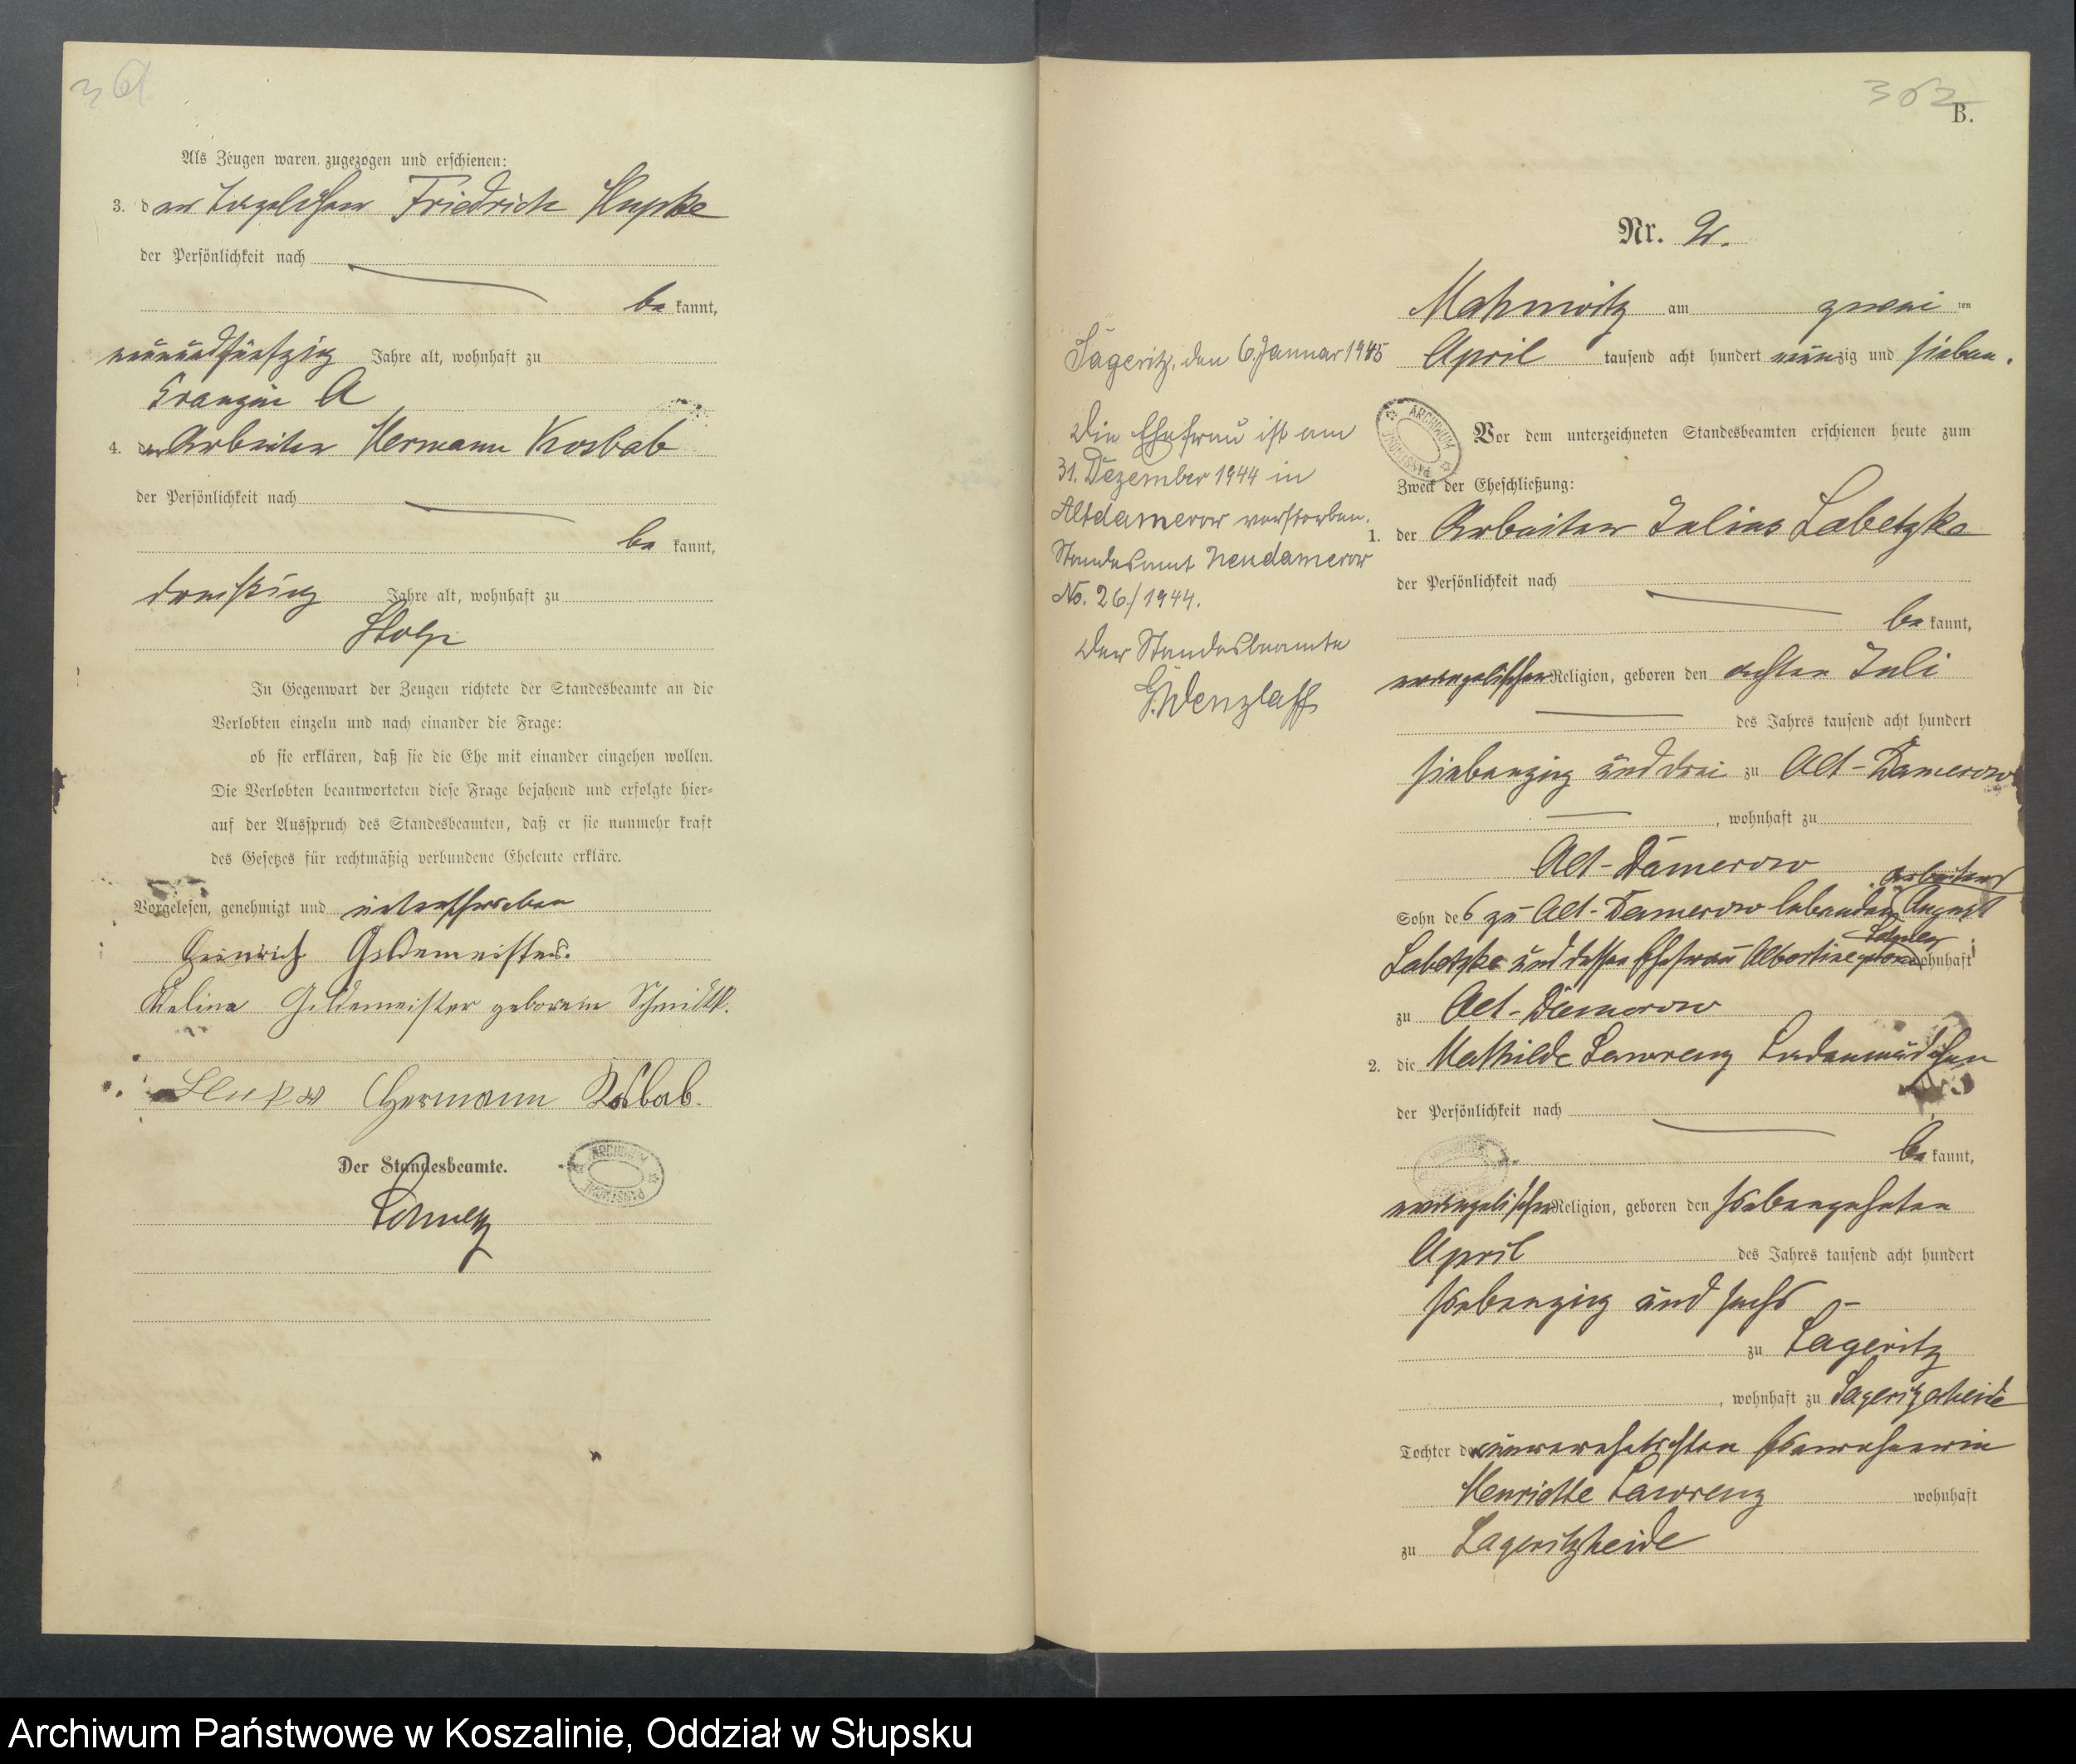 361
Als Zeugen waren zugezogen und erschienen:
3. der Tagelöhner Friedrich Slupke
der Persönlichkeit nach
be kannt,
neunundfünfzig Jahre alt, wohnhaft zu
Franzin A
4. der Arbeiter Hermann Kosbab
der Persönlichkeit nach
be kannt,
dreißig Jahre alt, wohnhaft zu
Stolp
In Gegenwart der Zeugen richtete der Standesbeamte an die
Verlobten einzeln und nach einander die Frage:
ob sie erklären, daß sie die Ehe mit einander eingehen wollen.
Die Verlobten beantworteten diese Frage bejahend und erfolgte hier=
auf der Ausspruch des Standesbeamten, daß er sie nunmehr kraft
des Gesetzes für rechtmäßig verbundene Eheleute erkläre.
Vorgelesen, genehmigt und unterschrieben
Heinrich Gildemeister.
Gildemeister geborene Schmidt.
Slupke Hermann Kosbab.
Der Standesbeamte.
ARCHIWUM PAŃSTWOWE
362
B.
Nr. 2.
Mahnwitz am zwei ten
April tausend acht hundert neunzig und sieben.
ARCHIWUM PAŃSTWOWE
Vor dem unterzeichneten Standesbeamten erschienen heute zum
Zweck der Eheschließung:
1. der Arbeiter Julius Labetzke
der Persönlichkeit nach
be kannt,
evangelischer Religion, geboren den achten Juli
des Jahres tausend acht hundert
siebenzig und drei zu Alt-Damerow
, wohnhaft zu
Alt-Damerow
Sohn des zu Alt-Damerow lebenden Arbeiters August
Labetzke und dessen Ehefrau Albertine geborene wohnhaft
zu Alt-Damerow
2. die Mathilde Lawrenz Ladenmädchen
der Persönlichkeit nach
be kannt,
evangelischer Religion, geboren den siebenzehnten
April des Jahres tausend acht hundert
siebenzig und sechs
zu Sageritz
, wohnhaft zu Sageritzerheide
Tochter der unverehelichten
Henriette Lawrenz wohnhaft
zu Sageritzheide
Sageritz, den 6. Januar 1945
Die Ehefrau ist am
31. Dezember 1944 in
Altdamerow verstorben.
Standesamt Neudamerow
No. 26/1944.
Der Standesbeamte
G. Wenzlaff
Archiwum Państwowe w Koszalinie, Oddział w Słupsku